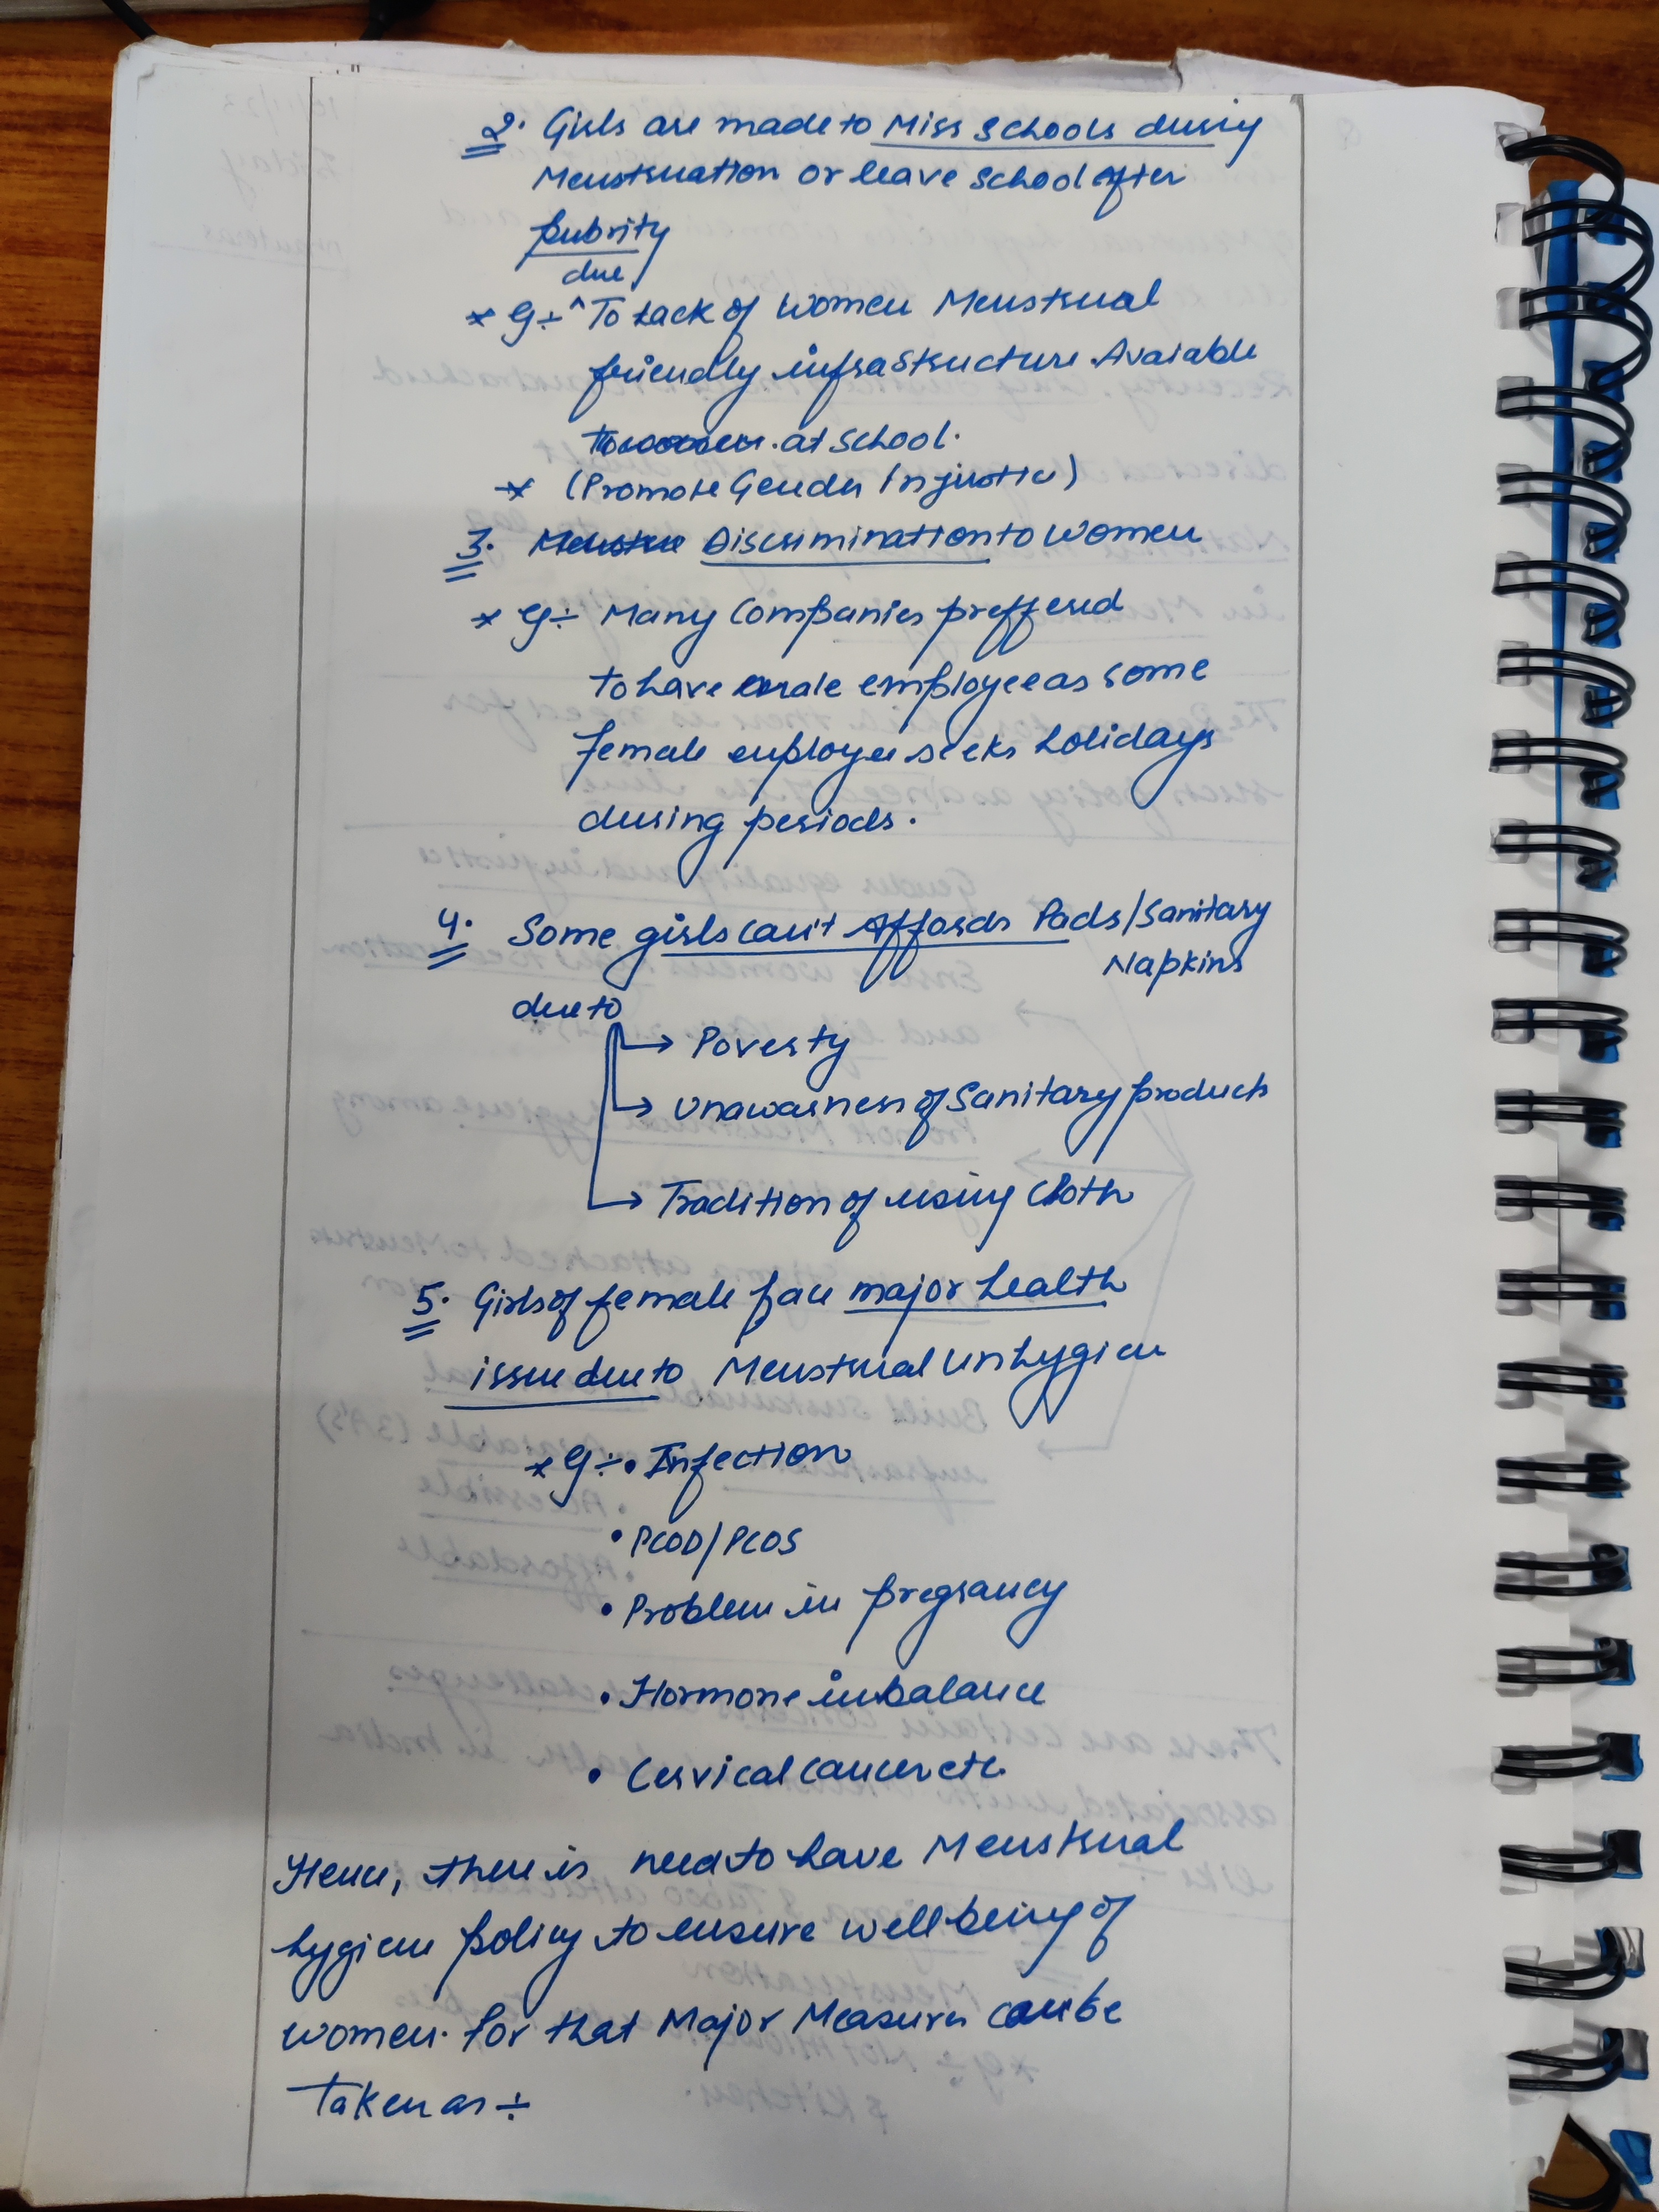 2. Girls are made to Miss Schools during
Menstruation or leave School after
pubrity
due
* Eg ÷ ^ To Lack of Women Menstrual
friendly infrastructure Avaiable
at School.
* (Promote Gender Injustice)
3. Discrimination to Women
* Eg ÷ Many Companies preffered
to have male employee as some
female employee seeks holidays
during periods.
4. Some girls can't Affords Pads/Sanitary
Napkins
due to
→ Poverty
→ Unawarness of Sanitary products
→ Tradition of using Cloth
5. Girls of female face major health
issue due to Menstrual Unhygiene
* Eg ÷ • Infection
• PCOD/PCOS
• Problem in pregnancy
• Hormone imbalance
• Cervical cancer etc.
Hence, there is need to have Menstrual
hygiene policy to ensure well being of
women. For that Major Measures can be
Taken as ÷